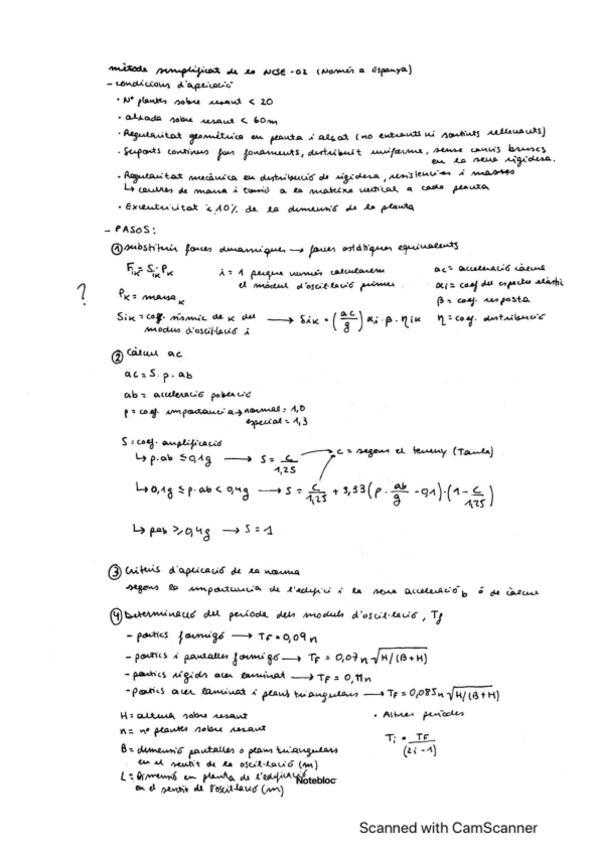 mètode simplificat de la NCSE-02 (Només a Espanya)
- condicions d'aplicació
· Nº plantes sobre rasant < 20
· alçada sobre rasant < 60m
· Regularitat geométrica en planta i alçat (no entrants ni sortints rellevants)
· Suports continus fins fonaments, distribuit uniforme, sense canvis bruscs
en la seva rigidesa.
· Regularitat mecànica en distribució de rigidesa, resistencies i masses
↳ centres de massa i torsió a la mateixa vertical a cada planta
· Excentricitat < 10% de la dimensió de la planta
- PASOS:
① substituir forces dinamiques → forces estàtiques equivalents
Fik = Sik · Pk
i = 1 perque només calcularem
el mòdul d'oscil·lació primer
ac = acceleració càlcul
αi = coef del espectre elàstic
β = coef. resposta
η = coef. distribució
?
Pk = massa k
Sik = coef. sísmic de k del → Sik = (ac/g) αi · β · ηik
modus d'oscil·lació i
② Càlcul ac
ac = S · p · ab
ab = acceleració població
p = coef. importancia → normal = 1,0
especial = 1,3
S = coef. amplificació
↳ p·ab ≤ 0,1g → S = C/1,25
C = segons el terreny (Taula)
↳ 0,1g ≤ p·ab < 0,4g → S = C/1,25 + 3,33 (p · ab/g - 0,1) · (1 - C/1,25)
↳ pab ≥ 0,4g → S = 1
③ Criteris d'aplicació de la norma
segons la importancia de l'edifici i la seva acceleració b ó de càlcul
④ Determinació del periode dels moduls d'oscil·lació, Tf
- portics formigó → TF = 0,09 n
- portics i pantalles formigó → TF = 0,07 n √H/(B+H)
- portics rígids acer laminat → TF = 0,11 n
- portics acer laminat i plans triangulars → TF = 0,085 n √H/(B+H)
H = altura sobre rasant
n = nº plantes sobre rasant
B = dimensió pantalles o plans triangulars
en el sentit de la oscil·lació (m)
L = Dimensió en planta de l'edificació
en el sentit de l'oscil·lació (m)
· Altres periodes
Ti = TF/(2i - 1)
Notebloc
Scanned with CamScanner